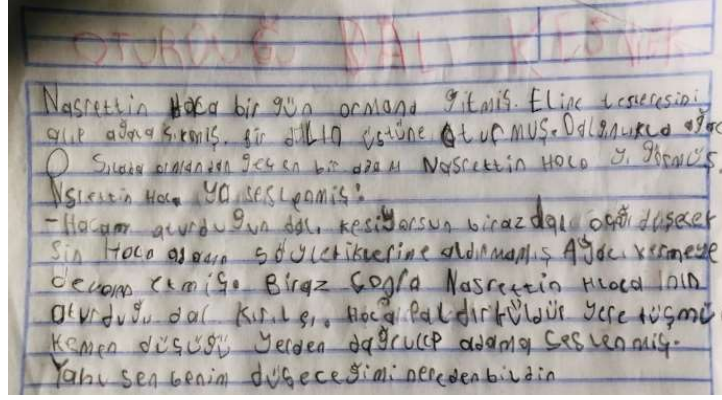 OTURDUĞU DALI KESMEK
Nasrettin Hoca bir gün ormana gitmiş. Eline testeresini
alıp ağaca çıkmış. Bir dalın üstüne oturmuş. Dalgınlıkla ağac
O sırada ormandan geçen bir adam Nasrettin Hoca yı görmüş.
Nsrettin Hoca ya seslenmiş:
-Hocam oturduğun dalı kesiyorsun birazdan düşecek
sin Hoca adamın söylediklerine aldırmamış Ağacı
devam etmiş. Biraz Nasrettin Hoca nın
oturduğu dal Hoca Paldır küldür yere
düştüğü yerden adama seslenmiş.
Yahu sen benim düşeceğimi nereden bildin